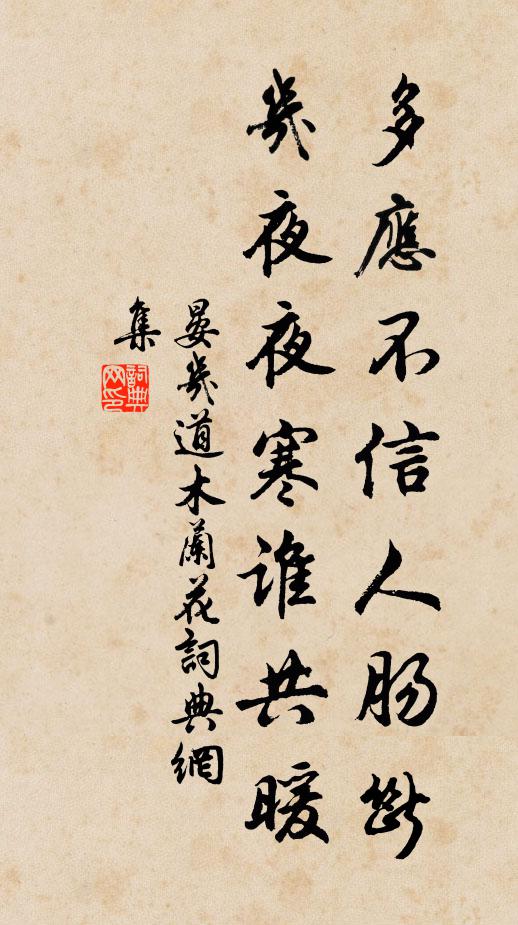 多應不信人肠斷
幾夜夜寒誰共暖
晏幾道木蘭花詞典網
集
詞典
网印